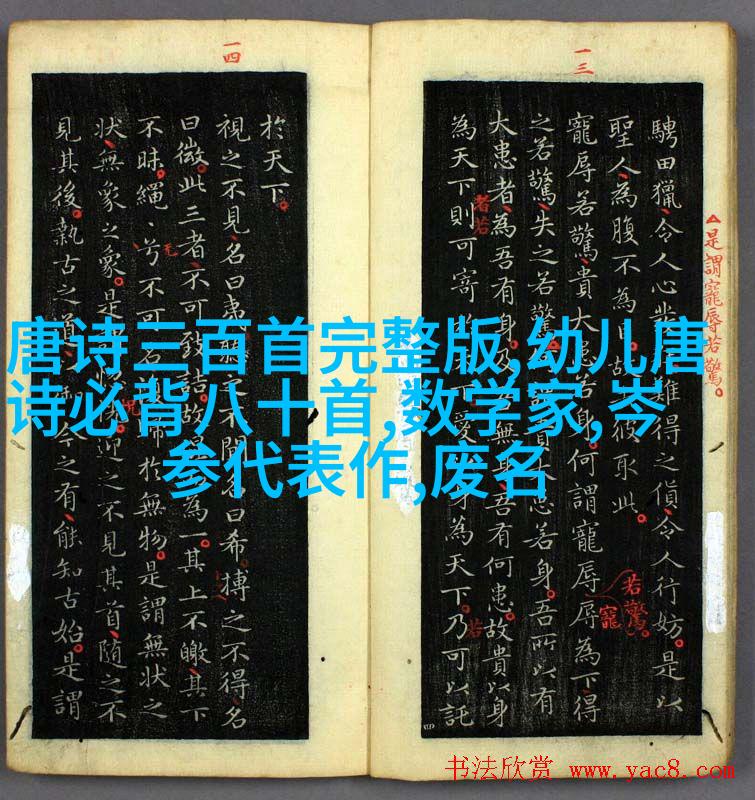 一三
是謂寵辱若驚。
騁田獵令人心 難得之貨令人行妨是以
聖人為腹不為 彼取此
寵辱若驚貴大患若身何謂寵辱辱為下得
之若驚失之若驚 若身吾所以有
大患者為吾有身 無身吾有何患故貴以身
為天下則可寄 天下愛 身為天下乃可以託
者若
若驚。
寵
若
一四
於天下。
視之不見名曰夷聽之不聞名曰希搏之不得名
曰微此三者不可致詰故 為一其上不皦其下
不昧繩〻兮不可名 歸於無物是謂無狀之
狀無象之象是 迎之不見其首隨之不
見其後執古之道 今之有能知古始是謂
无
唐诗三百首完整版,幼儿唐
诗必背八十首,数学家,岑
参代表作,废名
书法欣赏 www.yac8.com